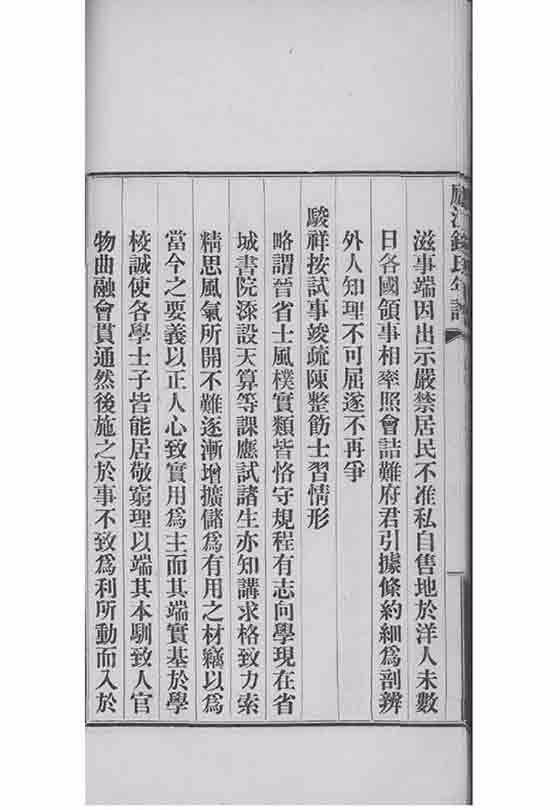 錢氏年譜
滋事端因出示嚴禁居民不准私自售地於洋人未數
日各國領事相率照會詰難府君引據條約細爲剖辨
外人知理不可屈遂不再爭
駿祥按試事竣疏陳整飭士習情形
略謂晉省士風樸實類皆恪守規程有志向學現在省
城書院添設天算等課應試諸生亦知講求格致力索
精思風氣所開不難逐漸增擴儲爲有用之材竊以爲
當今之要義以正人心致實用爲主而其端實基於學
校誠使各學士子皆能居敬窮理以端其本馴致人官
物曲融會貫通然後施之於事不致爲利所動而入於